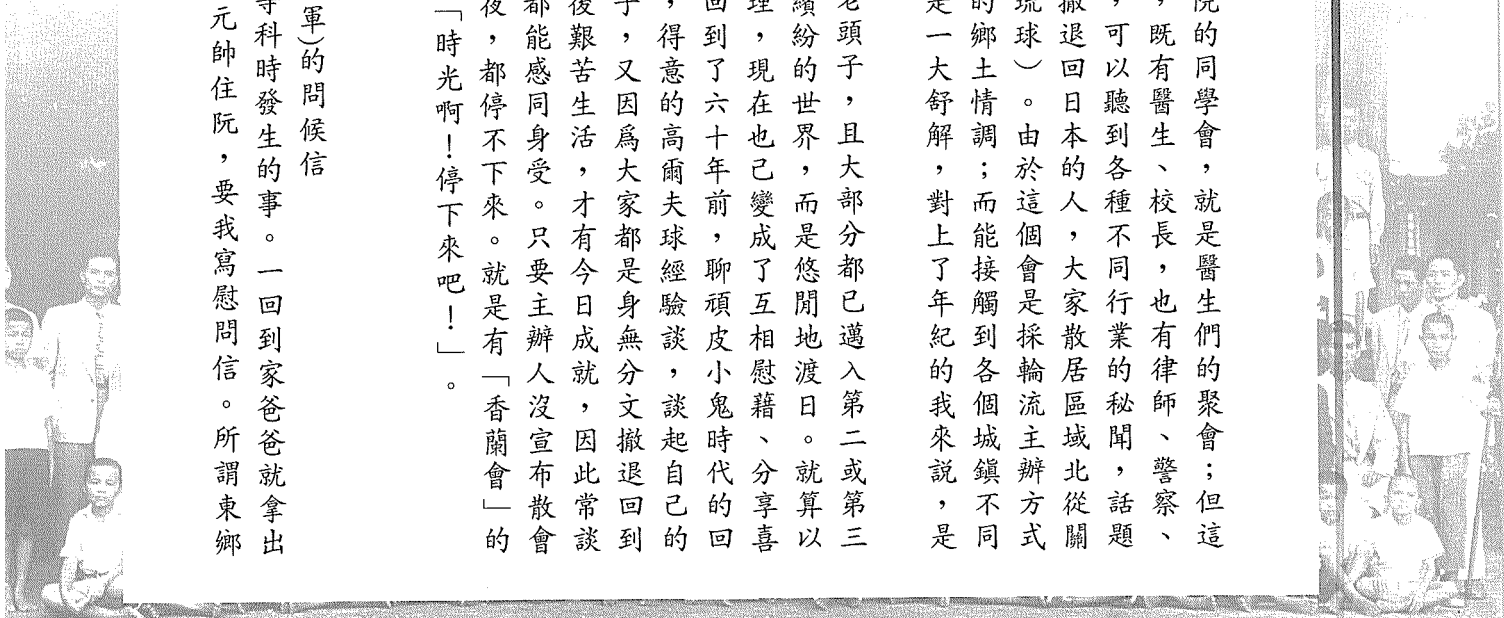 院的同學會，就是醫生們的聚會；但這
，既有醫生、校長，也有律師、警察、
，可以聽到各種不同行業的秘聞，話題
撤退回日本的人，大家散居區域北從關
琉球）。由於這個會是採輪流主辦方式
的鄉土情調；而能接觸到各個城鎮不同
是一大舒解，對上了年紀的我來說，是
老頭子，且大部分都已邁入第二或第三
繽紛的世界，而是悠閒地渡日。就算以
理，現在也已變成了互相慰藉、分享喜
回到了六十年前，聊頑皮小鬼時代的回
，得意的高爾夫球經驗談，談起自己的
子，又因爲大家都是身無分文撤退回到
後艱苦生活，才有今日成就，因此常談
都能感同身受。只要主辦人沒宣布散會
夜，都停不下來。就是有「香蘭會」的
「時光啊！停下來吧！」。
軍)的問候信
等科時發生的事。一回到家爸爸就拿出
元帥住阮，要我寫慰問信。所謂東鄉